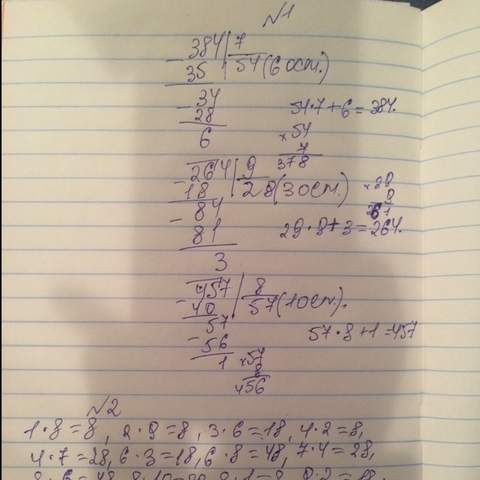 №1
384 | 7
35 | 54 (6 ост.)
34
28
6
54·7+6=384.
×54
7
378
264 | 9
18 | 29 (3 ост.)
84
81
3
×29
9
261
29·9+3=264.
457 | 8
40 | 57 (1 ост).
57
56
1
57·8+1=457
×57
8
456
№2
1·8=8, 2·9=8, 3·6=18, 4·2=8,
4·7=28, 6·3=18, 6·8=48, 7·4=28,